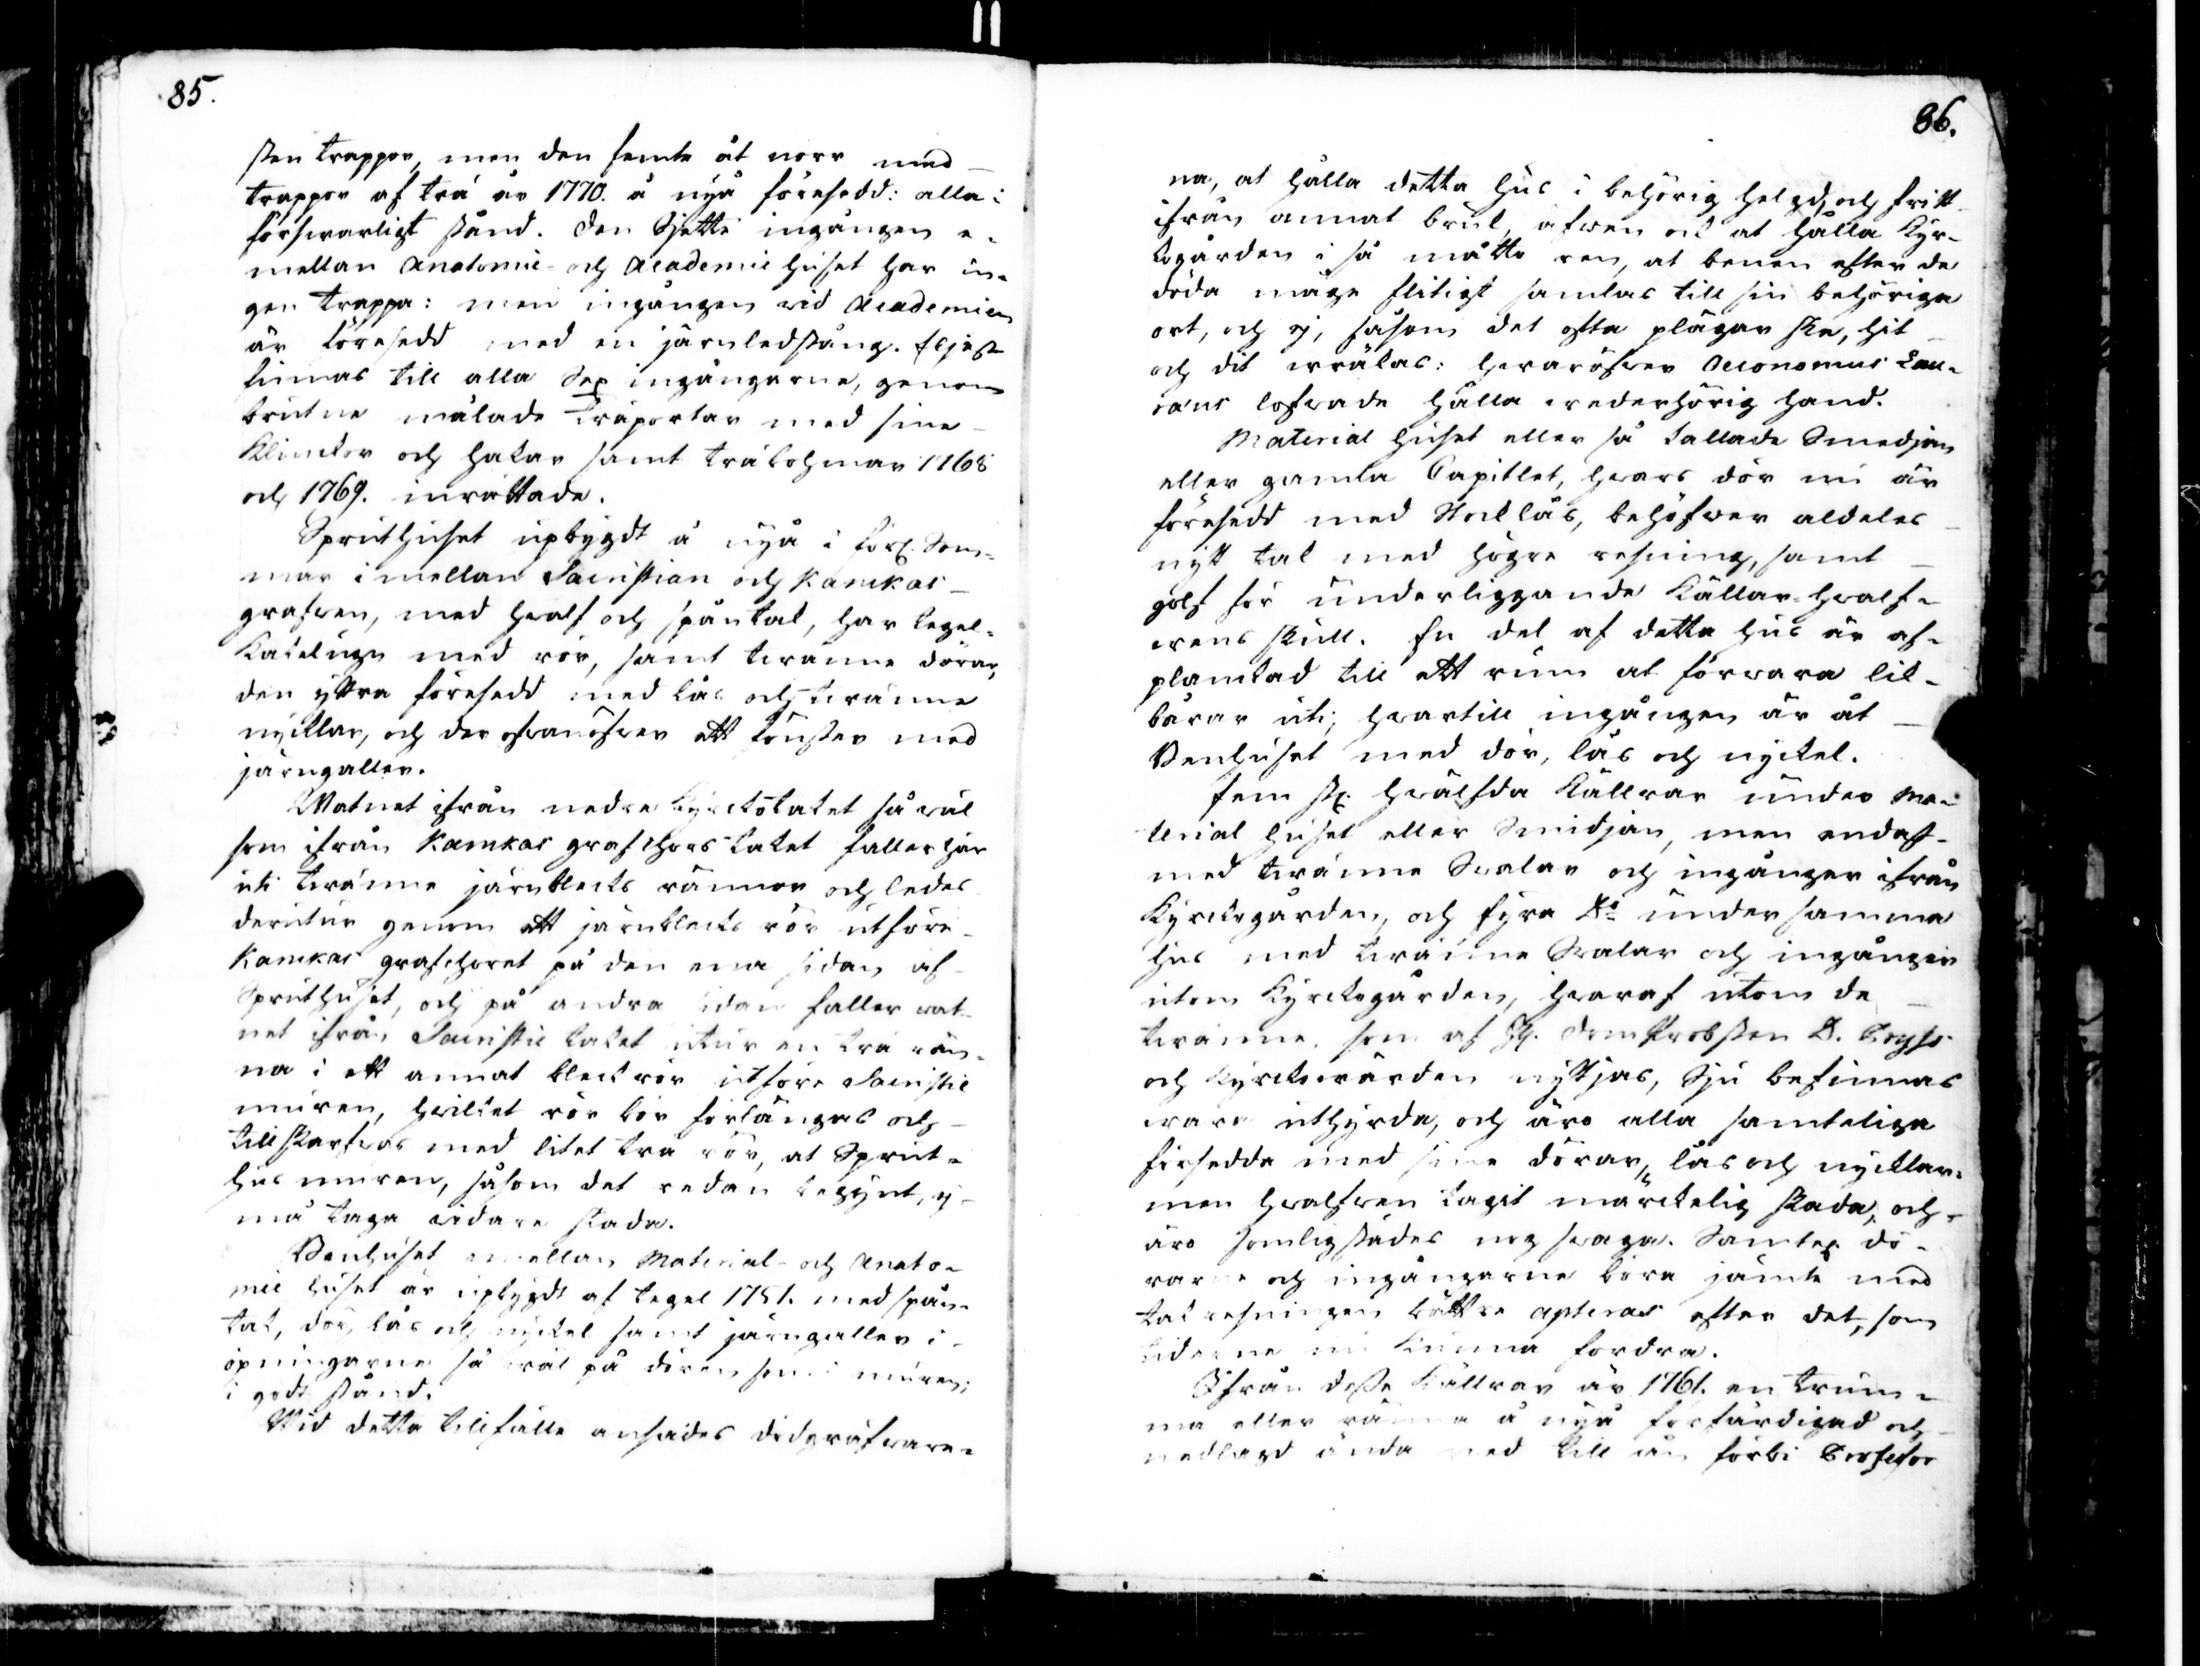 85.
sten trappor, men den femte åt norr med
trappor af trä är 1770. å nÿå försedd: alla i
försvarligt stånd. Den Sjette ingången e-
mellan Anatomie- och Academie huset har in-
gen trappa: men ingången vid Academien
är försedd med en järnledstång. Eljest
finnas till alla Sex ingångarne, genom
brutne målade träportar med sine
Klinckor och hakar samt träbohmar 1768
och 1769. inrättade.
Spruthuset upbÿgdt å nÿå i förl. Som-
mar imellan Sacristian och Kamkas
grafwen, med hwalf och spåntak, har tegel-
Kakelugn med rör, samt twänne dörar,
den ÿttra försedd med lås och twänne
nÿcklar, och der ofwanöfwer ett fönster med
järngaller.
Watnet ifrån nedre Kÿrckotaket så wäl
som ifrån Kamkas grafchors taket faller här
uti twänne järnblecks rännor och ledes
derutur genom ett järnblecks rör utföre
Kamkas grafchoret på den ena sidan af
Spruthuset, och på andra sidan faller wat-
net ifrån Sacristie taket utur en trä rän-
na i ett annat bleckrör utföre Sacristie
muren, hwilket rör bör förlängas och
tillskarfwas med litet trä rör, at Sprut-
hus muren, såsom det redan begÿnt, ej
må taga widare skada.
Benhuset emellan Material- och Anato-
mie huset är upbÿgdt af tegel 1751. med spån-
tak, dör, lås och nÿckel samt järngaller i
öpningarne så wäl på dören som i muren;
i godt stånd.
Wid detta tillfälle ansades dödgräfware-
86.
na, at hålla detta hus i behörig helgd, och fritt
ifrån annat bruk, äfwen ock at hålla Kÿr-
kogården i så måtto ren, at benen efter de
döda måge flitigt samlas till sin behöriga
ort, och ej, såsom det ofta plägar ske, hit
och dit wräkas: hwaröfwer Oeconomus Lau-
raeus lofwade hålla wederbörig hand.
Material huset eller så kallade Smedjan
eller gamla Capitlet, hwars dör nu är
försedd med Stocklås, behöfwer aldeles
nÿtt tak med högre resning, samt
golf för underliggande Källar-hwalf-
wens skull. En del af detta hus är af-
planckad till ett rum at förwara lik-
bårar uti; hwartill ingången är åt
Benhuset med dör, lås och nyckel.
Fem st. hwälfda Källrar under Ma-
terial huset eller Smidjan, men endast
med twänne Swalar och ingånger ifrån
Kÿrckogården, och fÿra Do under samma
hus med twänne Swalar och ingånger
utom Kÿrckogården, hwaraf utom de
twänne, som af H. Dom Probsten D.
och Kÿrckowärden nÿttjas, Sju befinnas
wara uthÿrda, och äro alla samteliga
försedda med sine dörar, lås och nÿcklar:
men hwalfwen tagit märckelig skada, och
äro somligstädes nog swaga. Samtel. dö-
rarne och ingångarne böra jämte med
takresningen bättre apteras efter det, som
tiderne nu kunna fordra.
Ifrån desse Källrar är 1761. en trum-
ma eller ränna å nÿå förfärdigad och
nedlagd ända ned till ån förbi Professor